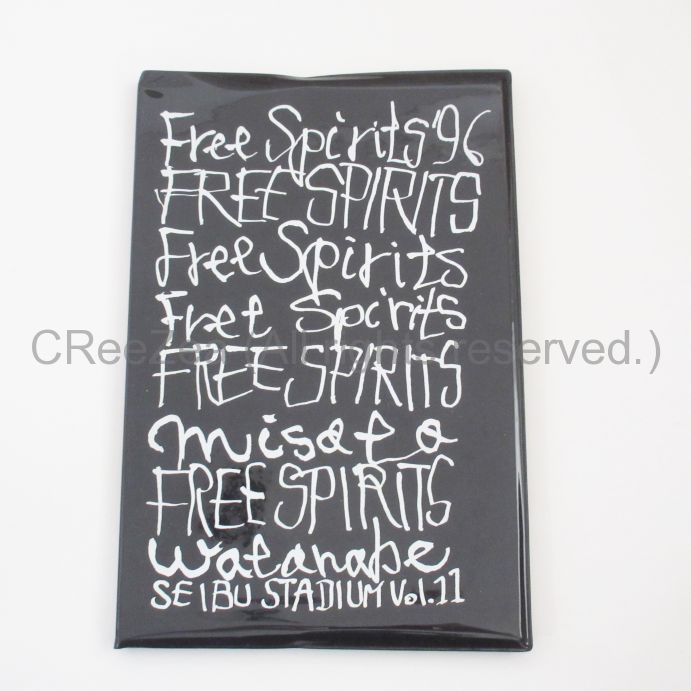 Free Spirits '96
FREE SPIRITS
Free Spirits
Free Spirits
CReeZen (All rights reserved.)
FREE SPIRITS
misato
FREE SPIRITS
watanabe
SEIBU STADIUM Vol.11